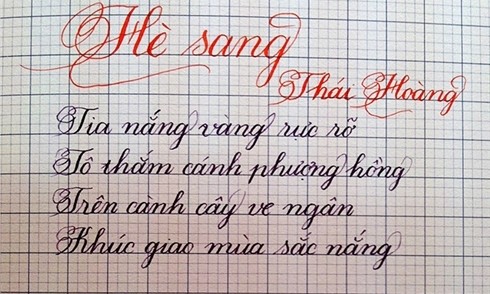 Hè sang
Thái Hoàng
Tia nắng vàng rực rỡ
Tô thắm cánh phượng hồng
Trên cành cây ve ngân
Khúc giao mùa sắc nắng